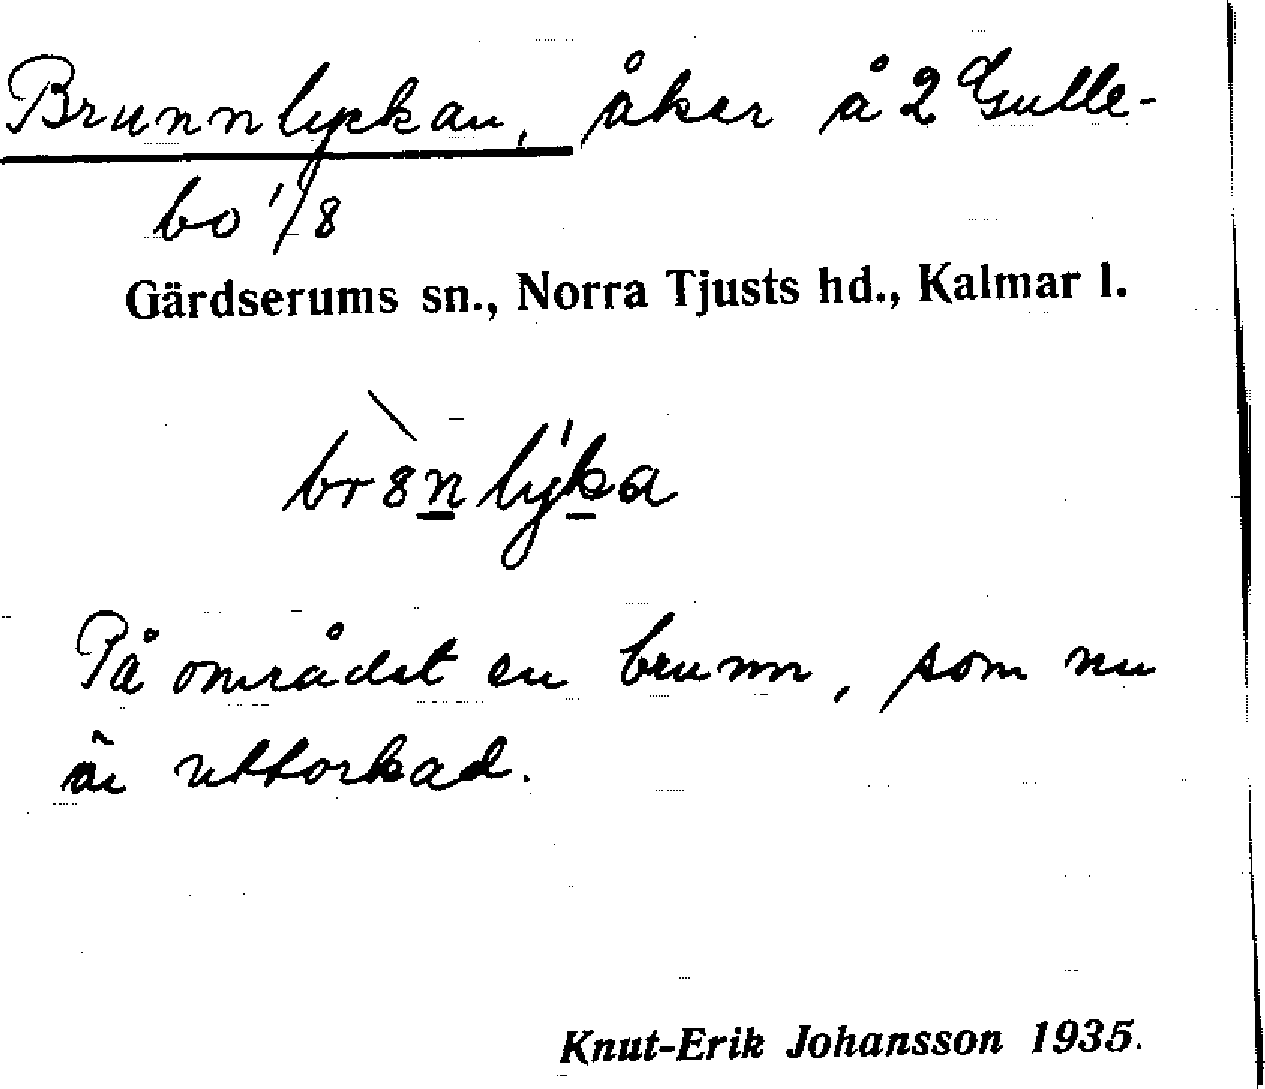 Brunnlyckan, åker å 2 Gulle-
bo 1/8
Gärdserums sn., Norra Tjusts hd., Kalmar l.
br8nlyka
På området en brunn, som nu
är uttorkad.
Knut-Erik Johansson 1935.